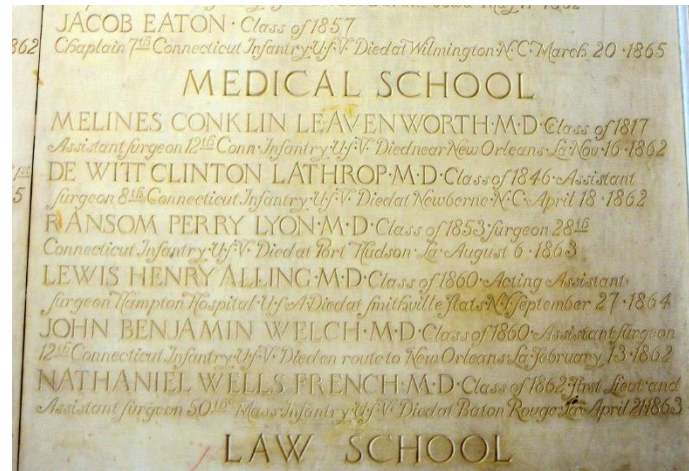 JACOB EATON · Class of 1857
1862 Chaplain 7th Connecticut Infantry·U·S·V· Died at Wilmington·N·C·March 20·1865
MEDICAL SCHOOL
MELINES CONKLIN LEAVENWORTH·M·D·Class of 1817
Assistant Surgeon 12th Conn·Infantry·U·S·V· Died near New Orleans·La·Nov·16·1862
DE WITT CLINTON LATHROP·M·D·Class of 1846·Assistant
Surgeon 8th Connecticut Infantry·U·S·V· Died at Newberne·N·C·April 18·1862
RANSOM PERRY LYON·M·D·Class of 1853·Surgeon 28th
Connecticut Infantry·U·S·V· Died at Port Hudson·La·August 6·1863
LEWIS HENRY ALLING·M·D·Class of 1860·Acting Assistant
Surgeon Hampton Hospital·U·S·A·Died at Smithville Flats·N·Y·September 27·1864
JOHN BENJAMIN WELCH·M·D·Class of 1860·Assistant Surgeon
12th Connecticut Infantry·U·S·V· Died en route to New Orleans·La·February 13·1862
NATHANIEL WELLS FRENCH·M·D·Class of 1862·First Lieut·and
Assistant Surgeon 50th Mass·Infantry·U·S·V· Died at Baton Rouge·La·April 21·1863
LAW SCHOOL